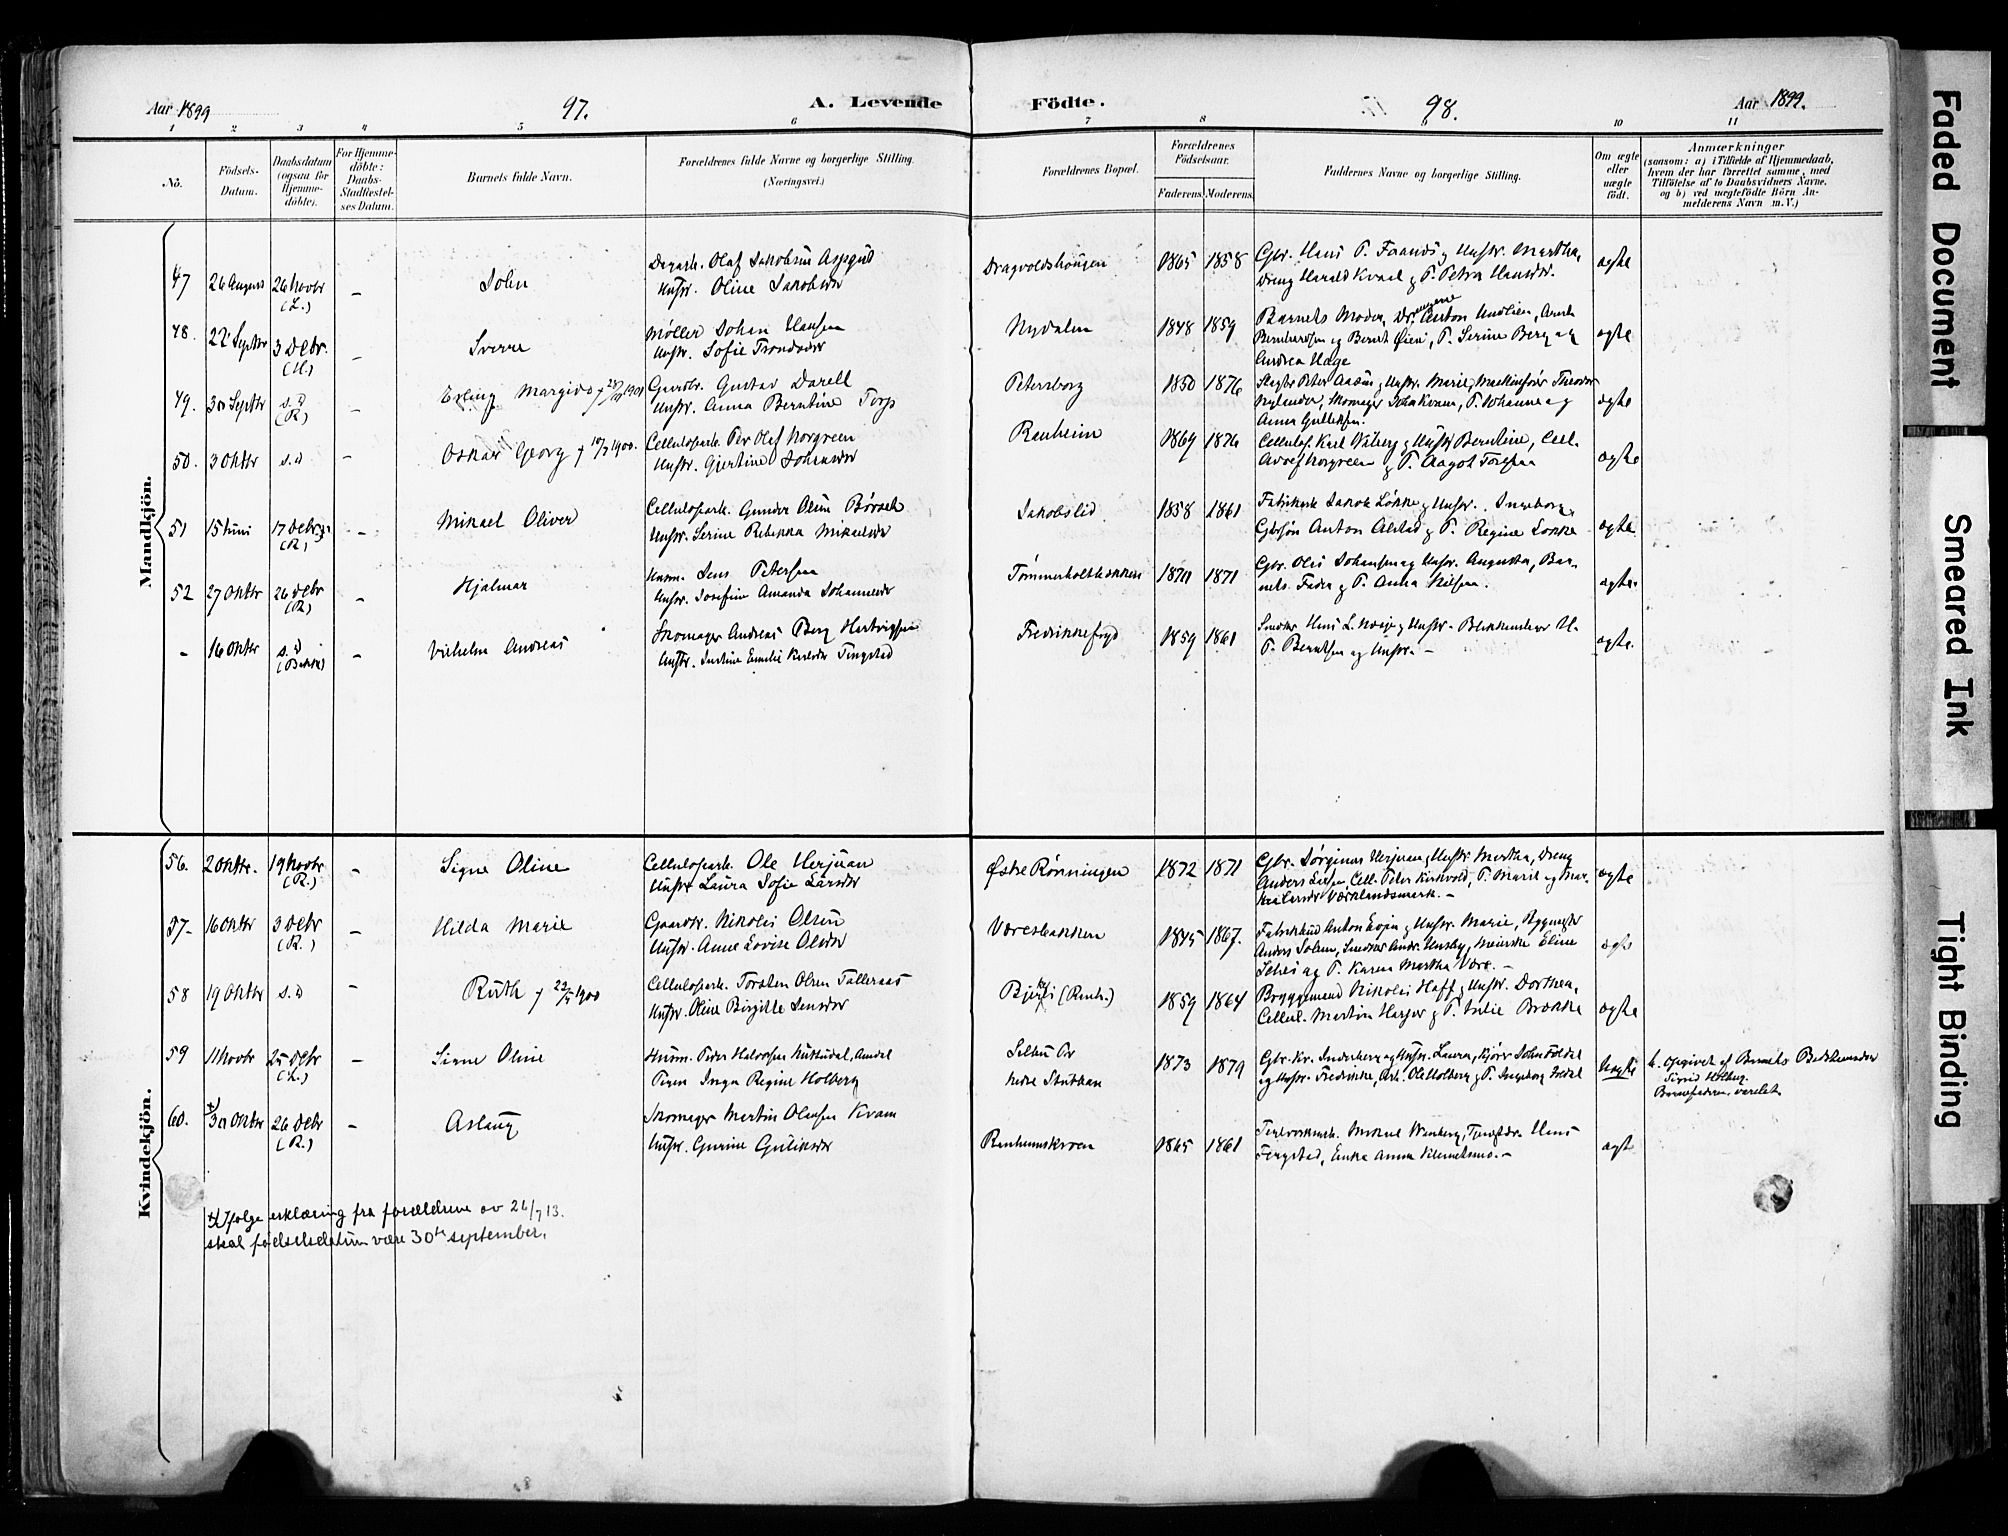 Aar 1899
97.
A. Levende
Födte.
98.
Aar 1899.
1 2 3 4 5 6 7 8 9 10 11
No.
Födsels-Datum.
Daabsdatum (ogsaa for Hjemme-döbte).
For Hjemme-döbte: Daabs-Stadfæstel-ses Datum.
Barnets fulde Navn.
Forældrenes fulde Navne og borgerlige Stilling.
(Næringsvei.)
Forældrenes Bopæl.
Forældrenes Födselsaar.
Faderens. Moderens.
Faddernes Navne og borgerlige Stilling.
Om ægte eller uægte födt.
Anmærkninger
(saasom: a) i Tilfælde af Hjemmedaab,
hvem der har forrettet samme, med
Tilföielse af to Daabsvidners Navne,
og b) ved uægtefödte Börn An-
melderens Navn m. V.)
Mandkjön.
47 26 August 26 Novbr (L.) - John
Dagarb. Olaf Jakobsen Aspgut
Hustr. Oline Jakobsdr
Dragvoldshougen 1865 1858
Gbr. Hans P. Fraando og Hustr. Martha,
Dreng Harald Kvaal og P. Petra Hansdr.
ægte
48. 22 Septbr 3 Debr. (H.) - Sverre
Møller Johan Hansen
Hustr. Sofie Trondsdr
Nydalen 1848 1859
Barnets Moder, Drengene Anton Undlien, Arnt
Bernhardsen og Bernt Øien, P. Serine Berg og
Andrea Hage
ægte
49. 30 Septbr s.d (R.) - Erling Margido
Gaardbr. Gustav Darell
Hustr. Anna Berntine Torp
Petersborg 1850 1876
Slagter Peter Aasen og Hustr. Marie, Maskinfører Theodor
Nylander, Skomager John Kvam, P. Johanne og
Anna Gulliksen.
ægte
50. 3 Oktbr s.d - Oskar Georg † 10/7 1900.
Cellulosearb. Per Olaf Norgreen
Hustr. Gjertine Johansdr
Ranheim 1869 1876
Cellulosearb. Karl Wiberg og Hustr Berntine, Cell.
Adolf Norgreen og P. Aagot Torsen
ægte
51 15 Juni 17 Debr (R.) - Mikael Oliver
Cellulosearb. Gunder Olsen Børseth
Hustr. Serine Rebekka Mikalsdr
Jakobslid 1858 1861
Fabrikarb. Jakob Løkke og Hustr. Ingeborg,
Gbrsøn Anton Alstad og P. Regine Løkke
ægte.
52 27 Oktbr 26 Debr (R.) - Hjalmar
Husm. Jens Petersen
Hustr. Josefine Amanda Johannesdr
Tømmerholtbakken 1870 1871
Gbr. Ole Johansen og Hustr. Augusta, Bar-
nets Fader og P. Anna Nilsen.
ægte.
- 16 Oktbr s.d - Vilhelm Andreas
Skomager Andreas Berg Hartvigsen
Hustr. Justine Emilie Karlsdr Tingstad
Fredrikkefryd 1859 1861
Smed Hans L. og Hustr. Blikkenslager H.
P. Berntsen og Hustr. -
ægte.
Kvindekjön.
56. 2 Oktbr. 19 Novbr (R.) - Signe Oline
Cellulosearb. Ole Herjuan
Hustr Laura Sofie Larsdr
Østre Rønningen 1872 1871
Gbr. Jørginus Herjuan og Hustr Martha, Dreng
Anders Larsen, Cell. Peter Kirkvold, P. Marie og Mar-
tha Larsdr Værklandsmark. -
ægte
57- 16 Oktbr 3 Debr (R.) - Hilda Marie
Gaardbr. Nikolai Olsen
Hustr. Anne Lovise Olsdr
Væresbakken 1845 1867.
Fabrikbud Anton Evjen og Hustr. Marie, Bygmester
Anders Solem, Snedker Andr. Husby, Meierske Eline
og P. Karen Martha Være. -
ægte
58 19 Oktbr s.d - Ruth † 22/5 1900
Cellulosearb. Torsten Olsen Talleraas
Hustr. Oline Birgitte Jensdr
(Ranh.) 1859 1864
Bryggemand Nikolai Hoff og Hustr. Dorthea,
Cellul. Martin Harper og P. Julie Brække
ægte
59 11 Novbr 25 Debr (L.) - Signe Oline
Husm. Peder Haldorsen Kulhudal, Aundal
Pigen Inga Regine Holberg
Selbu Or
nedre Stubban
1873 1879
Gbr. Kr. Inderberg og Hustr. Laura, Kjører John Foldal
og Hustr. Fredrikke, Arb. Ole Holberg og P. Ingeborg Foldal
Uægte
b. Opgivet af Barnets Bedstemoder
Sigrid Holberg
Barnefaderen varslet
60. +) 30 Oktbr 26 Debr (R.) - Aslaug
Skomager Martin Olausen Kvam
Hustr. Gurine Guliksdr
Ranheimskroen 1865 1861
Teglverksarb. Mikal Wanberg, Hans
Fergstad, Enke Anna Klemetsmo. -
ægte
+) Ifølge erklæring fra forældrene av 26/7 13.
skal fødselsdatum være 30te september.
Faded Document
Smeared Ink
Tight Binding